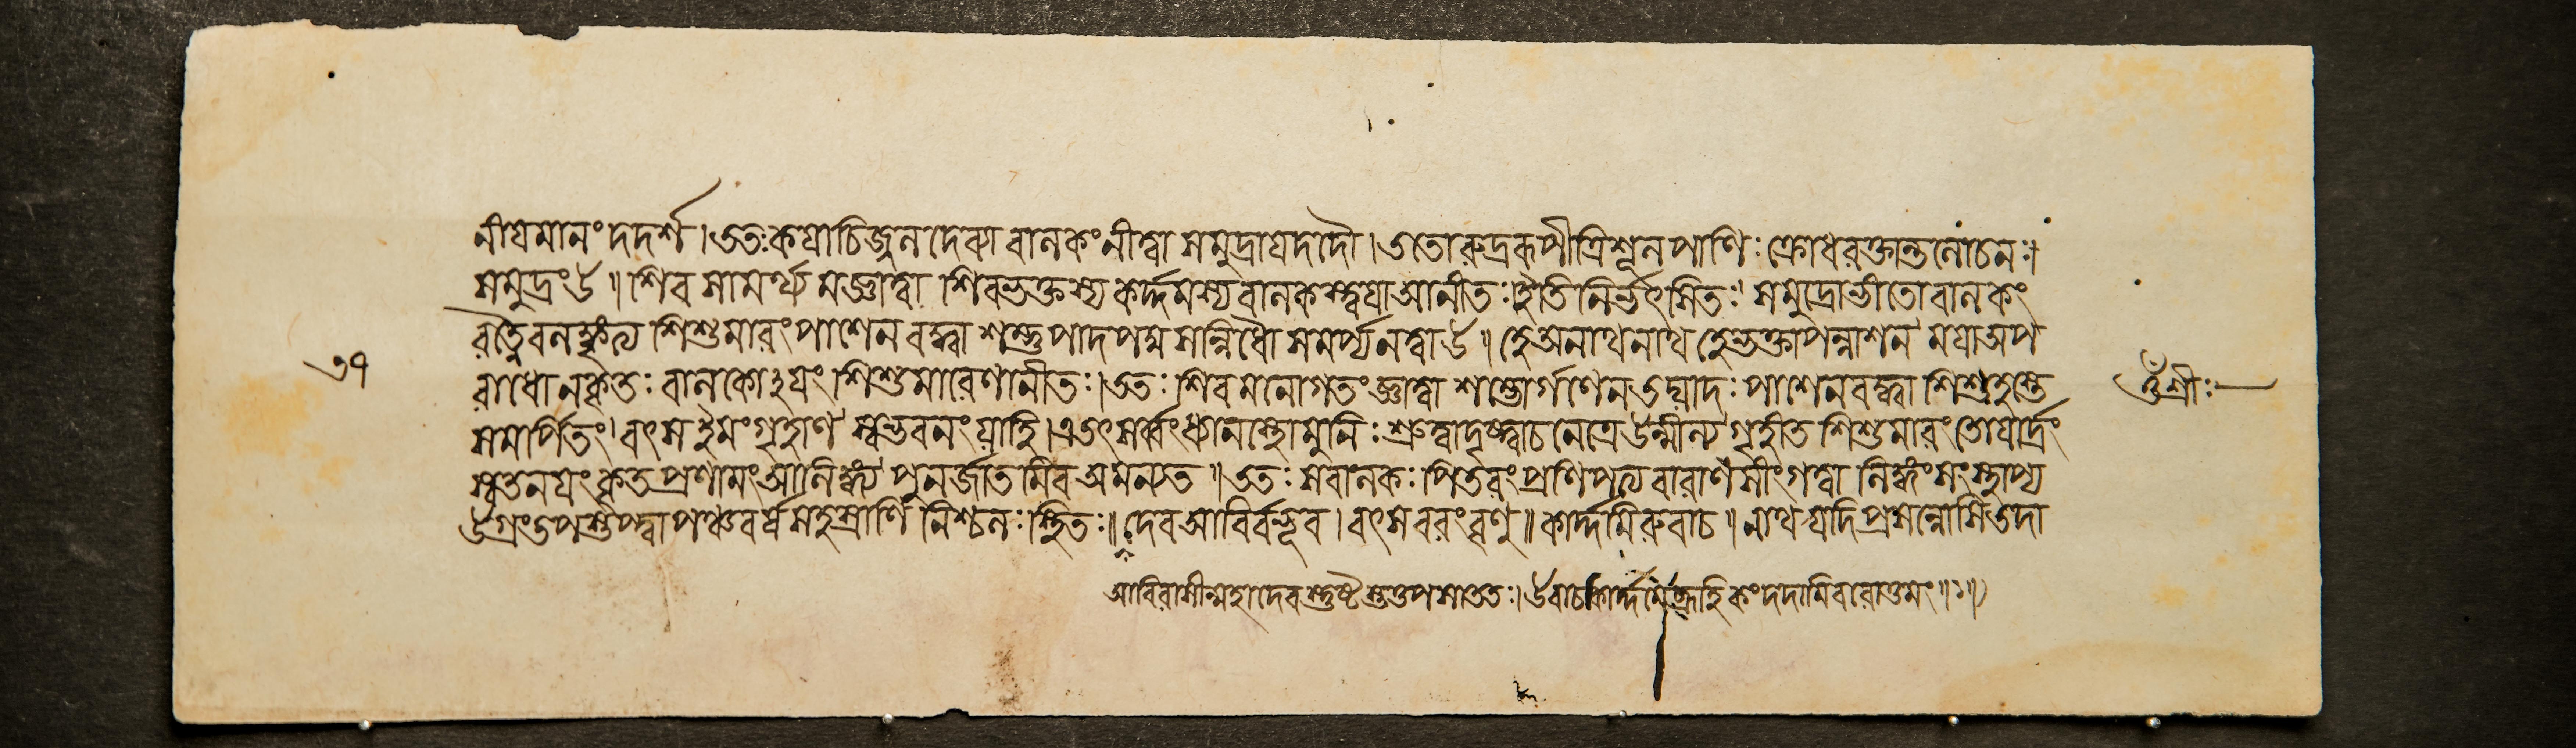 নীয়মানং দদর্শ।ততঃ কয়াচিজ্জলদেব্যা বালকং নীত্বা সমুদ্রায় দদৌ।ততো রুদ্ররূপী ত্রিশূলপাণিঃ ক্রোধরক্তান্তলোচনঃ।
সমুদ্রং উ॥ শিবসামর্থ্যমজ্ঞাত্বা শিবভক্তস্য কর্দ্দমস্য বালকস্ত্বয়া আনীতঃ ইতি নির্ভর্ৎসিতঃ। সমুদ্রো ভীতো বালকং
রত্নৈরলঙ্কৃত্য শিশুমারং পাশেন বদ্ধ্বা শম্ভুপাদপদ্মসান্নিধৌ সমর্প্য নত্বা উ॥ হে অনাথনাথ হে ভক্তাপন্নাশন ময়া অপ
৩৭
রাধো ন কৃতঃ বালকোঽয়ং শিশুমারেণানীতঃ।ততঃ শিবমনোগতং জ্ঞাত্বা শম্ভোর্গণেন পাশেন বদ্ধ্বা
ওঁশ্রীঃ
সমর্পিতং। বৎস ইমং গৃহাণ স্বভবনং যাহি।এতৎ সর্ব্বং ধ্যানস্থো মুনিঃ শ্রুত্বা দৃষ্ট্বা চ নেত্রে উন্মীল্য গৃহীত শিশুমারং তোয়ার্দ্রং
স্বতনয়ং কৃতপ্রণামং আলিঙ্গ্য পুনর্জাতমিব অমন্যত॥ততঃ স বালকঃ পিতরং প্রণিপত্য বারাণসীং গত্বা লিঙ্গং সংস্থাপ্য
উগ্রং তপস্তপ্ত্বা পঞ্চবর্ষসহস্রাণি নিশ্চলঃ স্থিতঃ॥ দেব আবির্বভূব। বৎস বরং বৃণু॥ কার্দ্দমিরুবাচ॥ নাথ যদি প্রসন্নোসি তদা
আবিরাসীন্মহাদেবস্তুষ্টস্তত্তপসা ততঃ।উবাচ কার্দ্দমে ব্রূহি কং দদামি বরোত্তমং॥